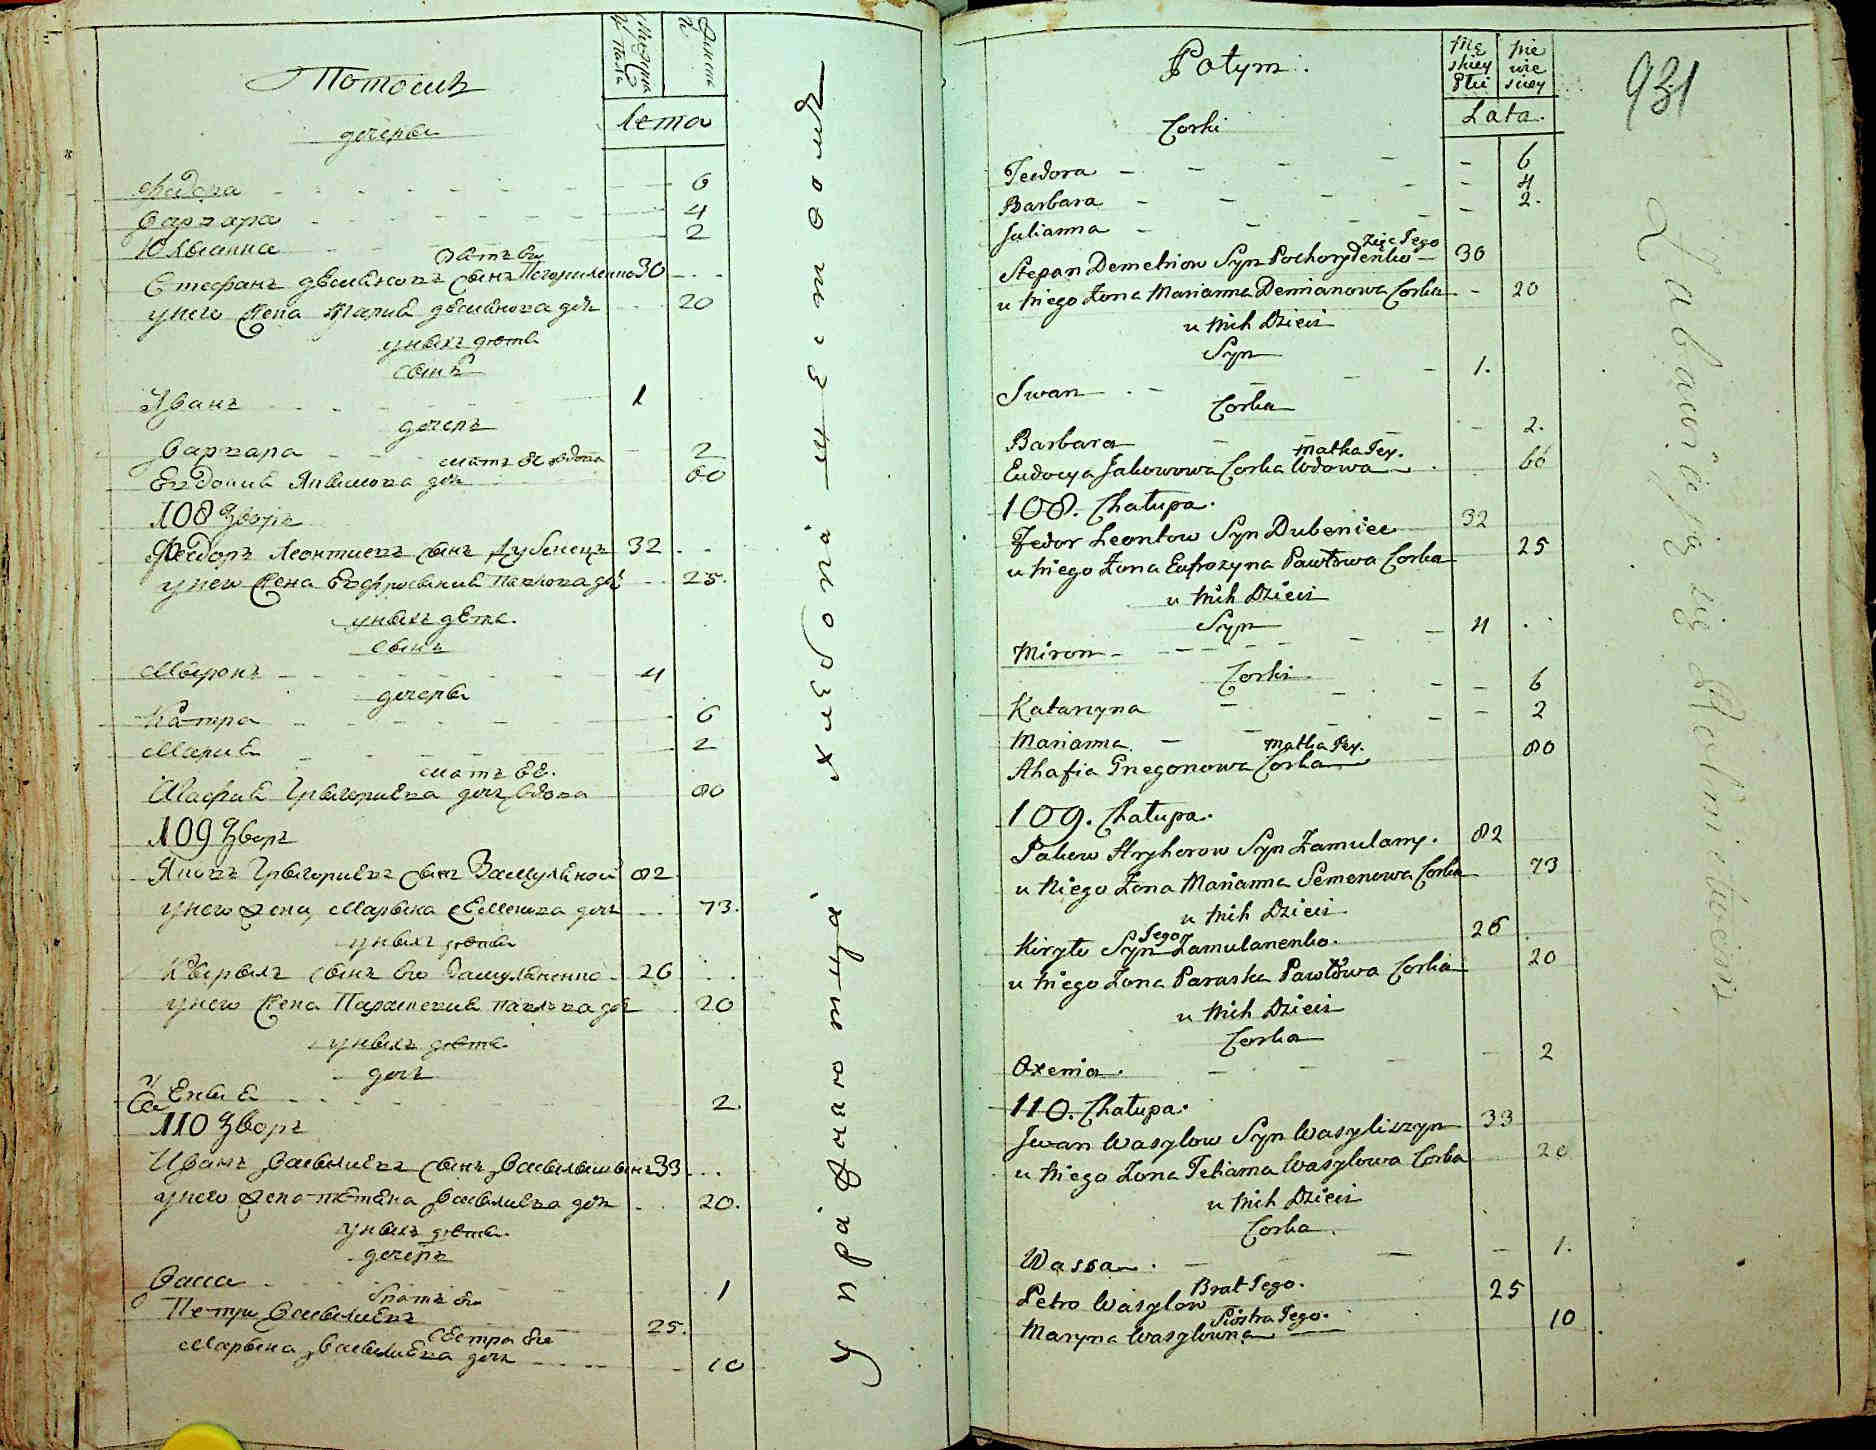 Потомъ
дочери
Мужеска пола
Женска
Лета
Федора 6
Варвара 4
Юлианна 2
Зять его
Стефанъ Демяновъ сынъ 30
у него жена Мария Демянова дочь 20
у них дети
сынъ
Иванъ 1
дочерь
Варвара 2
мать ее вдова
Евдокия Якимова дочь 60
108 Дворъ
Федоръ Леонтиевъ сынъ Дубенецъ 32
у него жена Евфросиния Павлова дочь 25
у них дети
сынъ
Миронъ 4
дочери
Катра 6
Мария 2
мать ее
Агафия Григориева дочь вдова 80
109 Дворъ
Яковъ Григориевъ сынъ Замуляной 82
у него жена Марина Семенова дочь 73
у них дети
Кирилъ сынъ его Замуляненко 26
у него жена Параскевия Павлова дочь 20
у них дети
дочь
Ксения 2
110 Дворъ
Иванъ Василиевъ сынъ Василишинъ 33
у него жена Тетяна Василиева дочь 20
у них дети
дочерь
Васса 1
братъ его
Петро Василиевъ 25
сестра его
Марина Василиева дочь 10
упражняются хлебопашеством
Potym
męskiey Płci
niewieściey
Lata
931
Corki
Teodora 6
Barbara 4
Julianna 2
Zięć Jego
Stepan Demeniow Syn Pochorydenko 30
u niego Zona Marianna Demianowa Corka 20
u nich Dzieci
Syn
Iwan 1
Corka
Barbara 2
matka Jey
Eudocya Jakowowa Corka wdowa 60
108. Chałupa
Fedor Leontow Syn Dubeniec 32
u niego Zona Eufrozyna Pawłowa Corka 25
u nich Dzieci
Syn
Miron 4
Corki
Katarzyna 6
Marianna 2
matka Jey
Ahafia Gregorowa Corka 80
109. Chałupa
Jakow Hryhorow Syn Zamulany 82
u niego Zona Marianna Semenowa Corka 73
u nich Dzieci
Kiryło Syn Jego Zamulanenko 26
u niego Zona Paraska Pawłowa Corka 20
u nich Dzieci
Corka
Oxenia 2
110. Chałupa
Iwan Wasylow Syn Wasyliszyn 33
u niego Zona Tetiana Wasylowa Corka 20
u nich Dzieci
Corka
Wassa 1
Brat Jego
Petro Wasylow 25
Siostra Jego
Maryna Wasylowna 10
Zabawiają się Rolnictwem